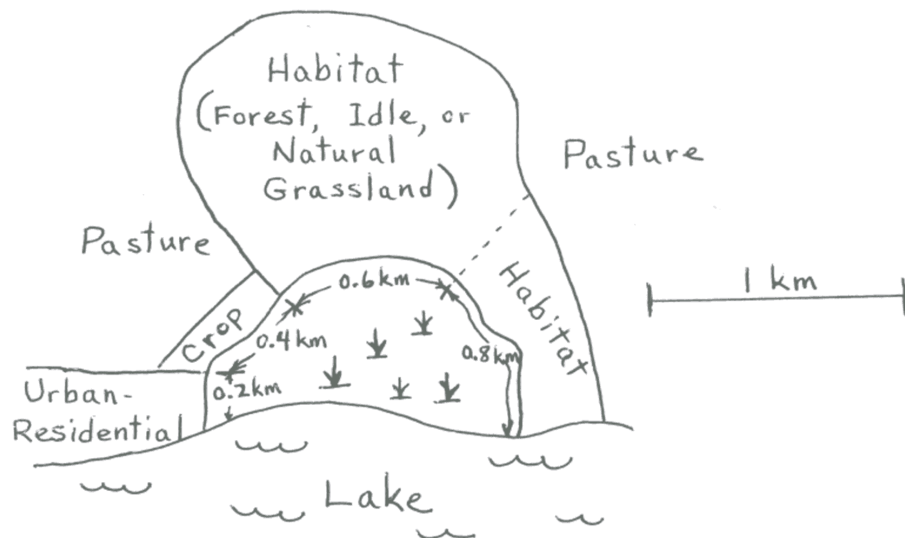 Habitat
(Forest, Idle, or
Natural
Grassland)
Pasture
Pasture
0.6km
Habitat
1 km
Crop
0.4km
0.8km
Urban-
Residential
0.2km
Lake